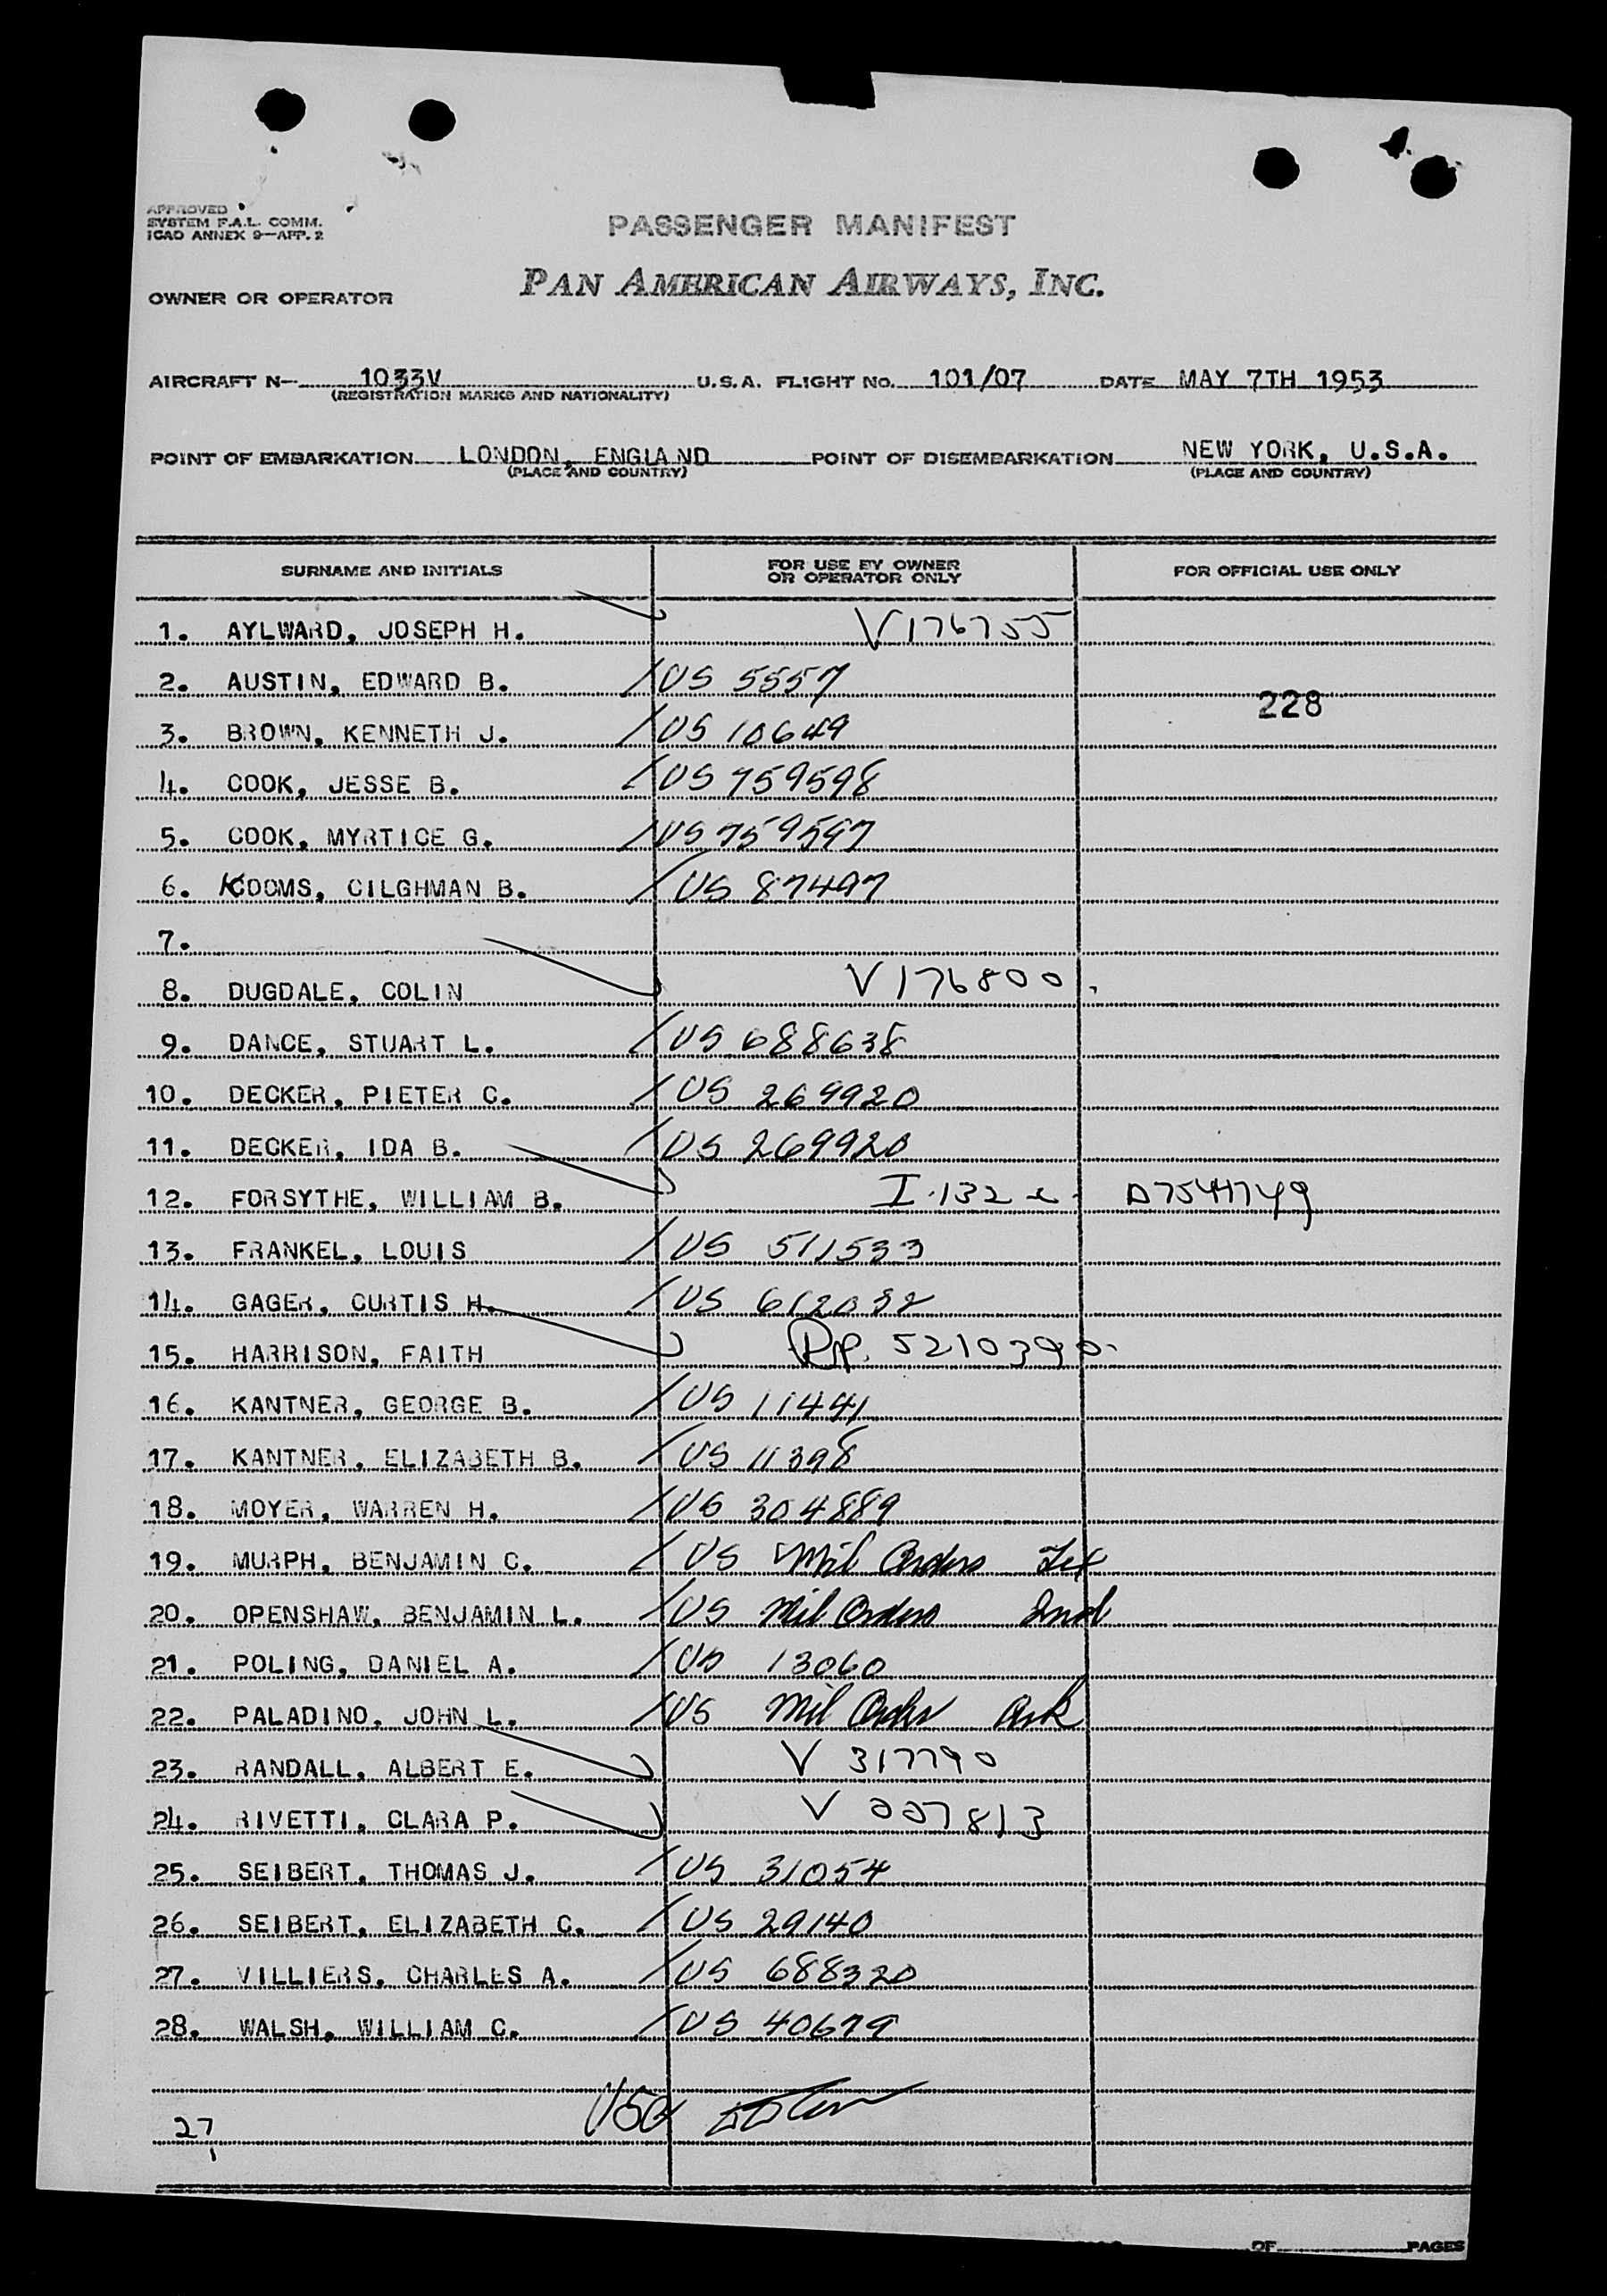 APPROVED
SYSTEM F.A.L. COMM.
ICAO ANNEX 9—APP. 2
PASSENGER MANIFEST
OWNER OR OPERATOR PAN AMERICAN AIRWAYS, INC.
AIRCRAFT N— 1033V U.S.A. FLIGHT NO. 101/07 DATE MAY 7TH 1953
(REGISTRATION MARKS AND NATIONALITY)
POINT OF EMBARKATION LONDON, ENGLAND POINT OF DISEMBARKATION NEW YORK, U.S.A.
(PLACE AND COUNTRY) (PLACE AND COUNTRY)
SURNAME AND INITIALS FOR USE BY OWNER OR OPERATOR ONLY FOR OFFICIAL USE ONLY
1. AYLWARD, JOSEPH H. V176755
2. AUSTIN, EDWARD B. US 5557
228
3. BROWN, KENNETH J. US 10649
4. COOK, JESSE B. US 759598
5. COOK, MYRTICE G. US 759597
6. KOOMS, CILGHMAN B. US 87497
7.
8. DUGDALE, COLIN V176800
9. DANCE, STUART L. US 688638
10. DECKER, PIETER C. US 269920
11. DECKER, IDA B. US 269920
12. FORSYTHE, WILLIAM B. I.132
13. FRANKEL, LOUIS US 511533
14. GAGER, CURTIS H. US 612032
15. HARRISON, FAITH Rp. 5210390
16. KANTNER, GEORGE B. US 11441
17. KANTNER, ELIZABETH B. US 11398
18. MOYER, WARREN H. US 304889
19. MURPH, BENJAMIN C. US Mil Orders Tex
20. OPENSHAW, BENJAMIN L. US Mil Orders Ind
21. POLING, DANIEL A. US 13060
22. PALADINO, JOHN L. US Mil Orders Ark
23. RANDALL, ALBERT E. V 317790
24. RIVETTI, CLARA P. V 007813
25. SEIBERT, THOMAS J. US 31054
26. SEIBERT, ELIZABETH C. US 29140
27. VILLIERS, CHARLES A. US 688320
28. WALSH, WILLIAM C. US 40679
27
OF PAGES